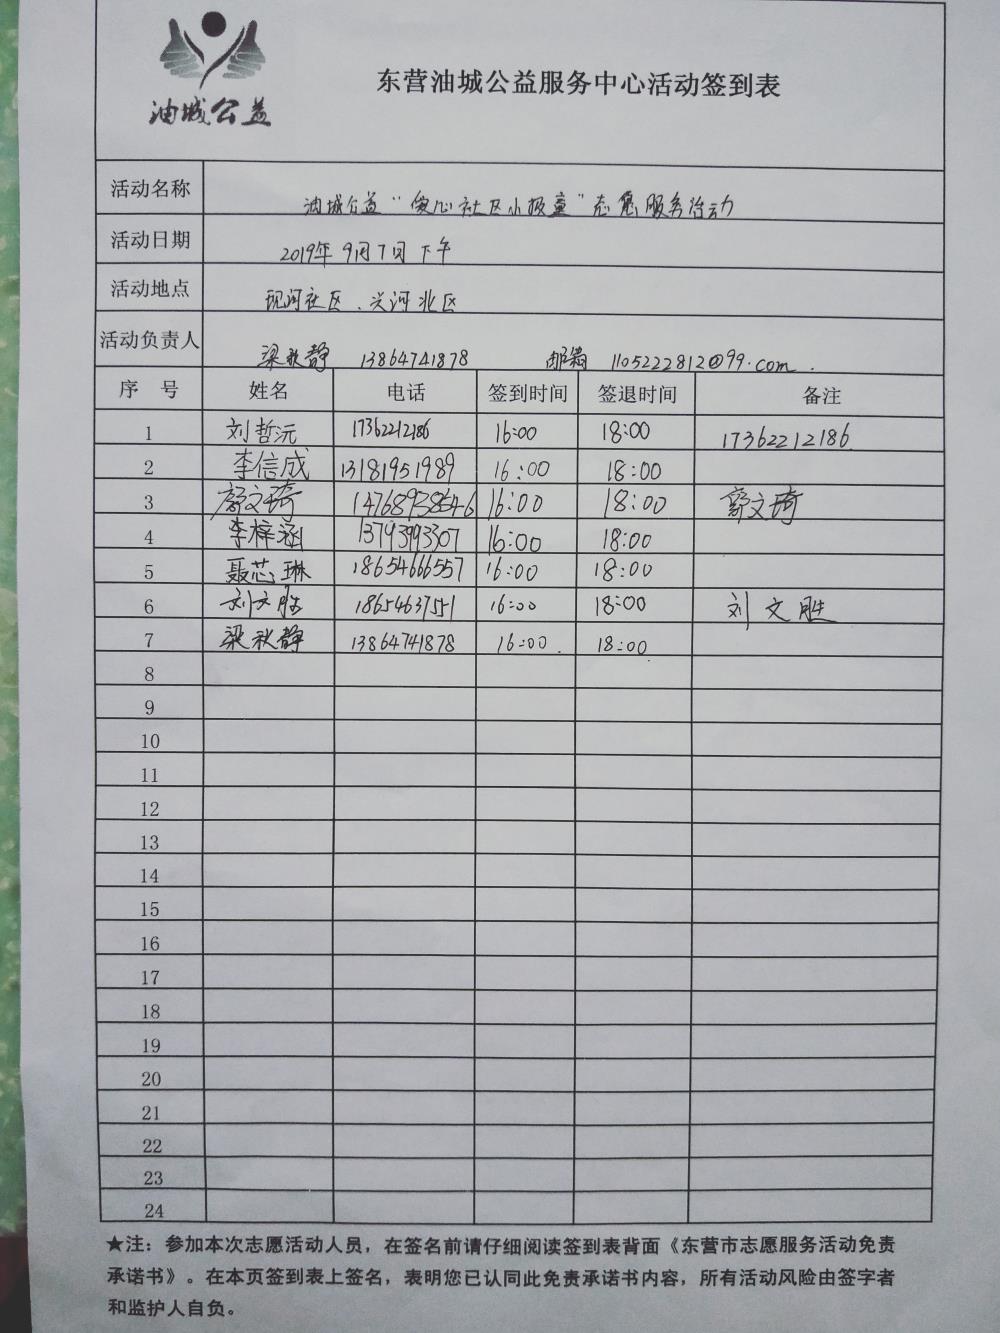 油城公益
东营油城公益服务中心活动签到表
活动名称 油城公益“爱心社区小报童”志愿服务活动
活动日期 2019年9月7日下午
活动地点 现河社区、兴河北区
活动负责人 梁秋静 13864741878 邮箱 1105222812@99.com.
序 号 姓名 电话 签到时间 签退时间 备注
1 刘哲沅 17362212186 16:00 18:00 17362212186
2 李信成 13181951989 16:00 18:00
3 廖文琦 14768938546 16:00 18:00 郭文琦
4 李梓涵 13793993307 16:00 18:00
5 聂芯琳 18654666557 16:00 18:00
6 刘文胜 18654637551 16:00 18:00 刘文胜
7 梁秋静 13864741878 16:00. 18:00
8
9
10
11
12
13
14
15
16
17
18
19
20
21
22
23
24
★注：参加本次志愿活动人员，在签名前请仔细阅读签到表背面《东营市志愿服务活动免责
承诺书》。在本页签到表上签名，表明您已认同此免责承诺书内容，所有活动风险由签字者
和监护人自负。